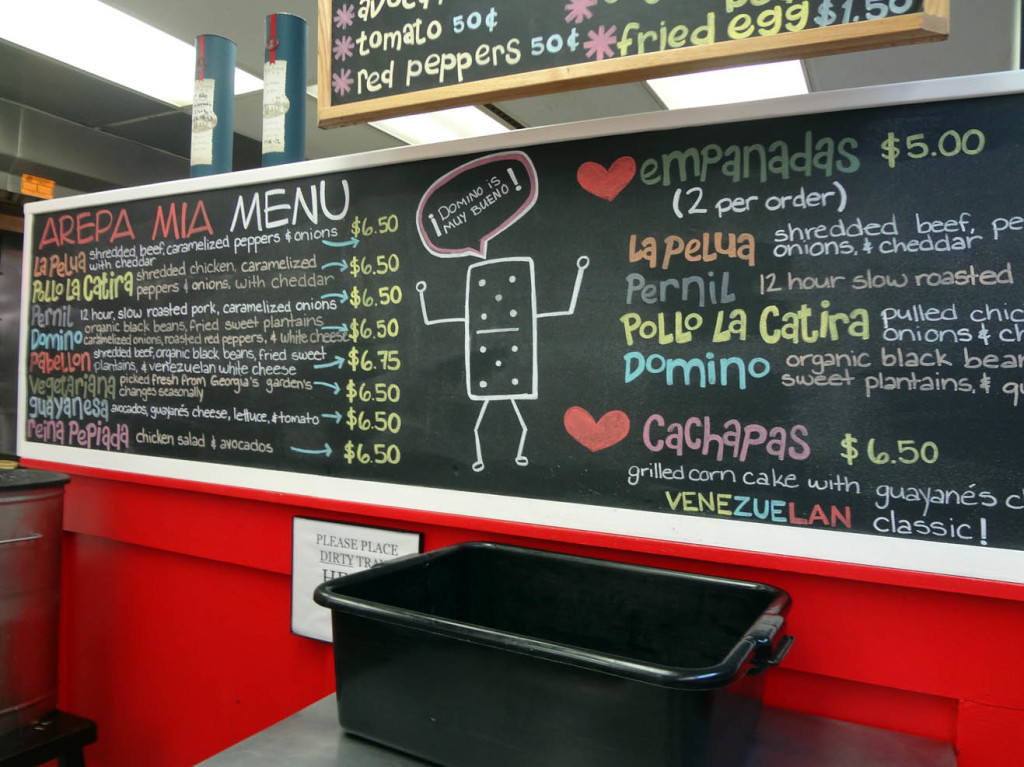 tomato 50¢
red peppers 50¢
fried egg $1.50
AREPA MIA MENU
La Pelua shredded beef, caramelized peppers & onions $6.50
with cheddar
Pollo La Catira shredded chicken, caramelized $6.50
peppers & onions, with cheddar
Pernil 12 hour, slow roasted pork, caramelized onions $6.50
Domino organic black beans, fried sweet plantains $6.50
caramelized onions, roasted red peppers, & white cheese
Pabellon shredded beef, organic black beans, fried sweet $6.75
plantains, & venezuelan white cheese
Vegetariana picked fresh from Georgia's gardens $6.50
changes seasonally
guayanesa avocados, guayanés cheese, lettuce, & tomato $6.50
reina Pepiada chicken salad & avocados $6.50
¡DOMINO IS
MUY BUENO!
empanadas $5.00
(2 per order)
La Pelua shredded beef, pe
onions, & cheddar
Pernil 12 hour slow roasted
Pollo La Catira pulled chic
onions & ch
Domino organic black bean
sweet plantains, & qu
Cachapas $6.50
grilled corn cake with guayanés c
VENEZUELAN classic!
PLEASE PLACE
DIRTY TRA
HE